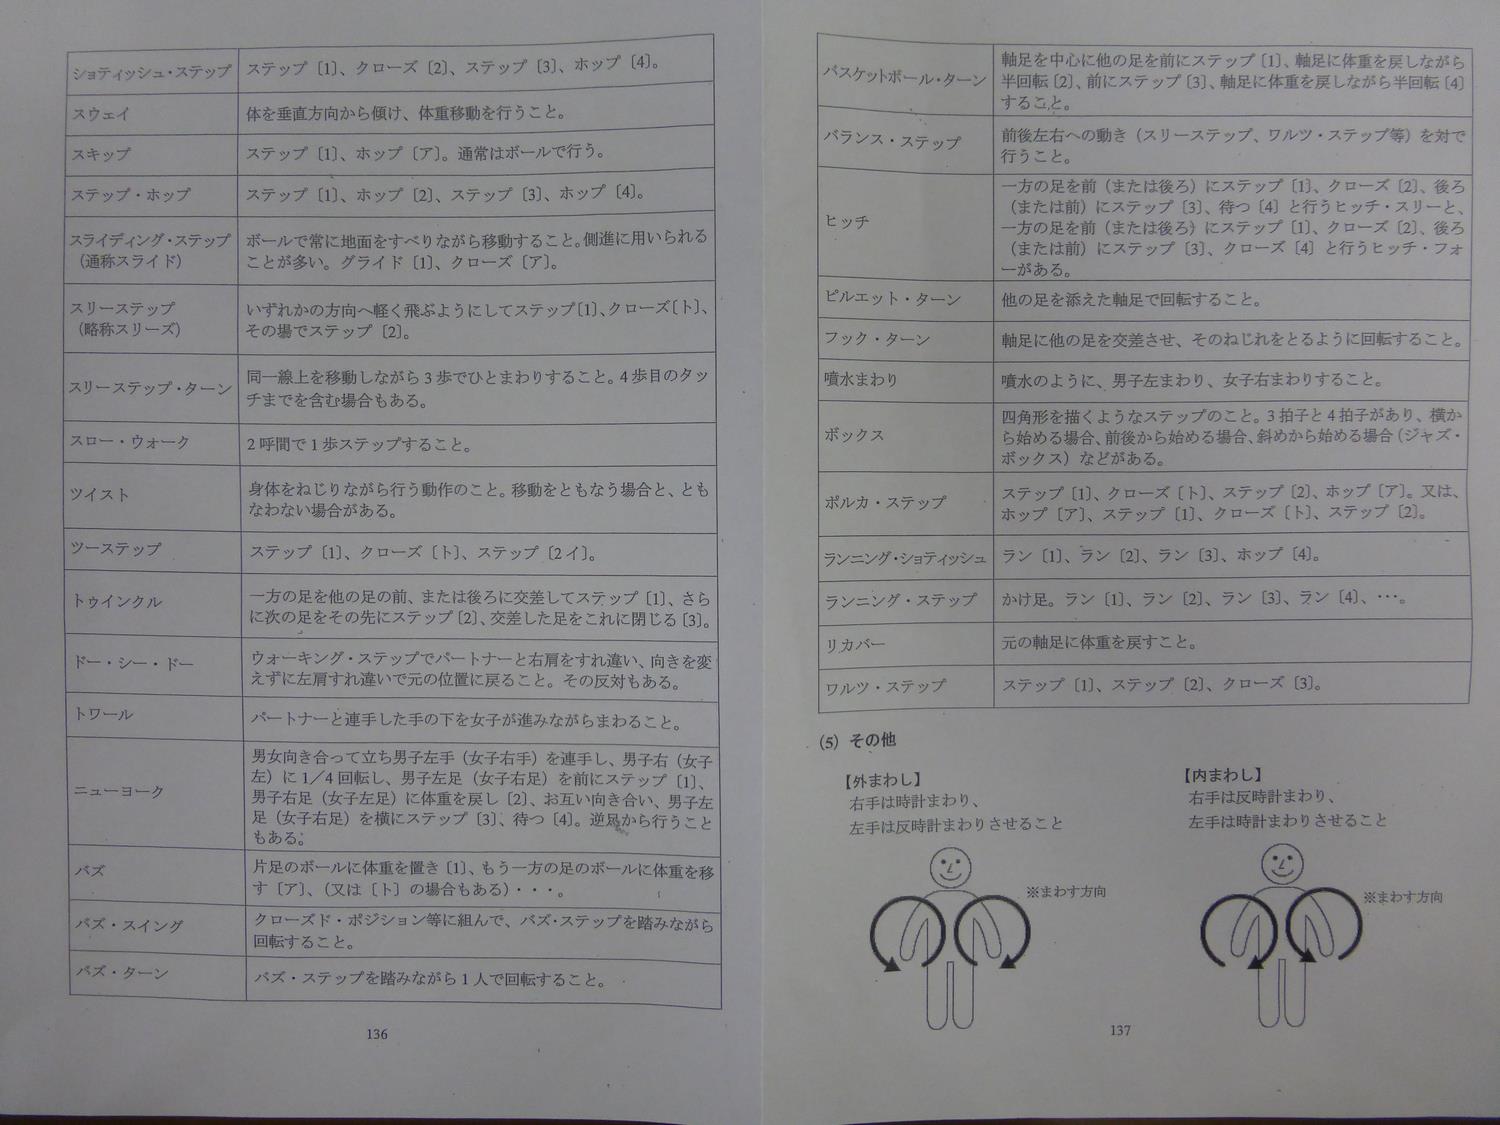 ショティッシュ・ステップ
ステップ〔1〕、クローズ〔2〕、ステップ〔3〕、ホップ〔4〕。
スウェイ
体を垂直方向から傾け、体重移動を行うこと。
スキップ
ステップ〔1〕、ホップ〔ア〕。通常はボールで行う。
ステップ・ホップ
ステップ〔1〕、ホップ〔2〕、ステップ〔3〕、ホップ〔4〕。
スライディング・ステップ
（通称スライド）
ボールで常に地面をすべりながら移動すること。側進に用いられる
ことが多い。グライド〔1〕、クローズ〔ア〕。
スリーステップ
（略称スリーズ）
いずれかの方向へ軽く飛ぶようにしてステップ〔1〕、クローズ〔ト〕、
その場でステップ〔2〕。
スリーステップ・ターン
同一線上を移動しながら3歩でひとまわりすること。4歩目のタッ
チまでを含む場合もある。
スロー・ウォーク
2呼間で1歩ステップすること。
ツイスト
身体をねじりながら行う動作のこと。移動をともなう場合と、とも
なわない場合がある。
ツーステップ
ステップ〔1〕、クローズ〔ト〕、ステップ〔2イ〕。
トゥインクル
一方の足を他の足の前、または後ろに交差してステップ〔1〕、さら
に次の足をその先にステップ〔2〕、交差した足をこれに閉じる〔3〕。
ドー・シー・ドー
ウォーキング・ステップでパートナーと右肩をすれ違い、向きを変
えずに左肩すれ違いで元の位置に戻ること。その反対もある。
トワール
パートナーと連手した手の下を女子が進みながらまわること。
ニューヨーク
男女向き合って立ち男子左手（女子右手）を連手し、男子右（女子
左）に1／4回転し、男子左足（女子右足）を前にステップ〔1〕、
男子右足（女子左足）に体重を戻し〔2〕、お互い向き合い、男子左
足（女子右足）を横にステップ〔3〕、待つ〔4〕。逆足から行うこと
もある。
バズ
片足のボールに体重を置き〔1〕、もう一方の足のボールに体重を移
す〔ア〕、（又は〔ト〕の場合もある）・・・。
バズ・スイング
クローズド・ポジション等に組んで、バズ・ステップを踏みながら
回転すること。
バズ・ターン
バズ・ステップを踏みながら1人で回転すること。
136
バスケットボール・ターン
軸足を中心に他の足を前にステップ〔1〕、軸足に体重を戻しながら
半回転〔2〕、前にステップ〔3〕、軸足に体重を戻しながら半回転〔4〕
すること。
バランス・ステップ
前後左右への動き（スリーステップ、ワルツ・ステップ等）を対で
行うこと。
ヒッチ
一方の足を前（または後ろ）にステップ〔1〕、クローズ〔2〕、後ろ
（または前）にステップ〔3〕、待つ〔4〕と行うヒッチ・スリーと、
一方の足を前（または後ろ）にステップ〔1〕、クローズ〔2〕、後ろ
（または前）にステップ〔3〕、クローズ〔4〕と行うヒッチ・フォ
ーがある。
ピルエット・ターン
他の足を添えた軸足で回転すること。
フック・ターン
軸足に他の足を交差させ、そのねじれをとるように回転すること。
噴水まわり
噴水のように、男子左まわり、女子右まわりすること。
ボックス
四角形を描くようなステップのこと。3拍子と4拍子があり、横か
ら始める場合、前後から始める場合、斜めから始める場合（ジャズ・
ボックス）などがある。
ポルカ・ステップ
ステップ〔1〕、クローズ〔ト〕、ステップ〔2〕、ホップ〔ア〕。又は、
ホップ〔ア〕、ステップ〔1〕、クローズ〔ト〕、ステップ〔2〕。
ランニング・ショティッシュ
ラン〔1〕、ラン〔2〕、ラン〔3〕、ホップ〔4〕。
ランニング・ステップ
かけ足。ラン〔1〕、ラン〔2〕、ラン〔3〕、ラン〔4〕、・・・。
リカバー
元の軸足に体重を戻すこと。
ワルツ・ステップ
ステップ〔1〕、ステップ〔2〕、クローズ〔3〕。
（5）その他
【外まわし】
右手は時計まわり、
左手は反時計まわりさせること
※まわす方向
【内まわし】
右手は反時計まわり、
左手は時計まわりさせること
※まわす方向
137